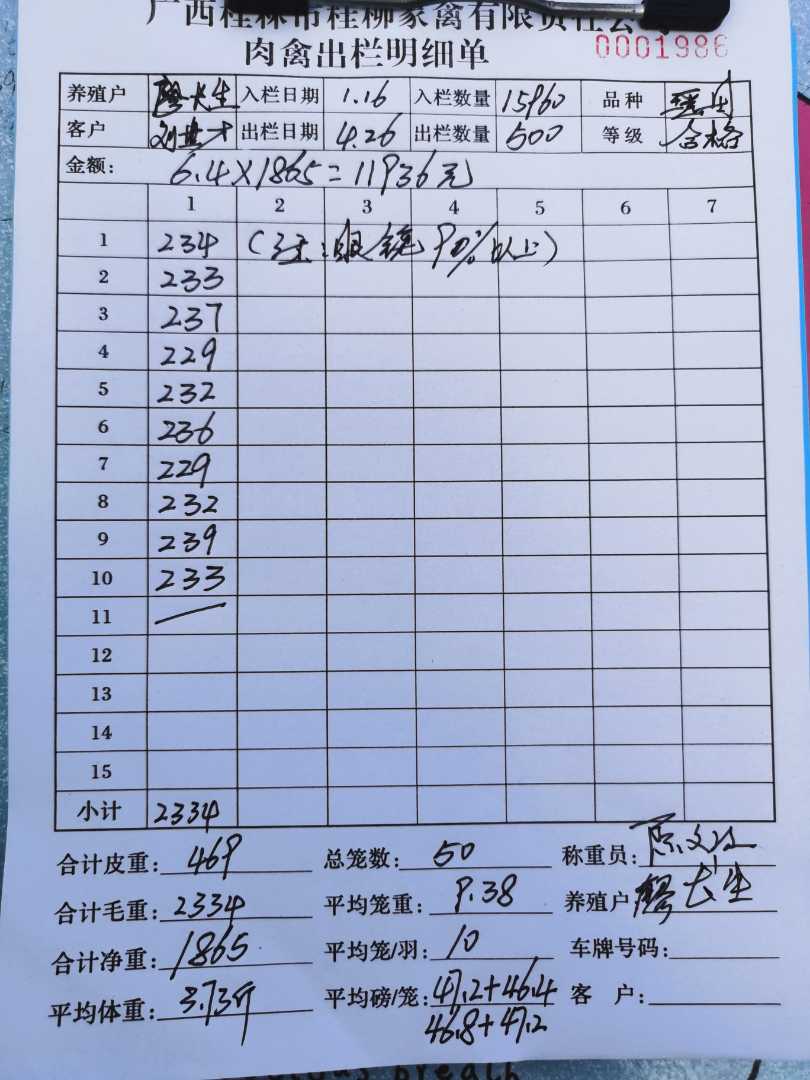 广西桂林市桂柳家禽有限责任公司
肉禽出栏明细单 0001986
养殖户 廖长生 入栏日期 1.16 入栏数量 15960 品种
客户 出栏日期 4.26 出栏数量 500 等级 合格
金额: 6.4×1865=11936元
1 2 3 4 5 6 7
1 234 (注:眼镜90%以上)
2 233
3 237
4 229
5 232
6 236
7 229
8 232
9 239
10 233
11 —
12
13
14
15
小计 2334
合计皮重: 469 总笼数: 50 称重员:
合计毛重: 2334 平均笼重: 9.38 养殖户 廖长生
合计净重: 1865 平均笼/羽: 10 车牌号码:
平均体重: 3.73斤 平均磅/笼: 47.2+46.4 客 户:
46.8+47.2